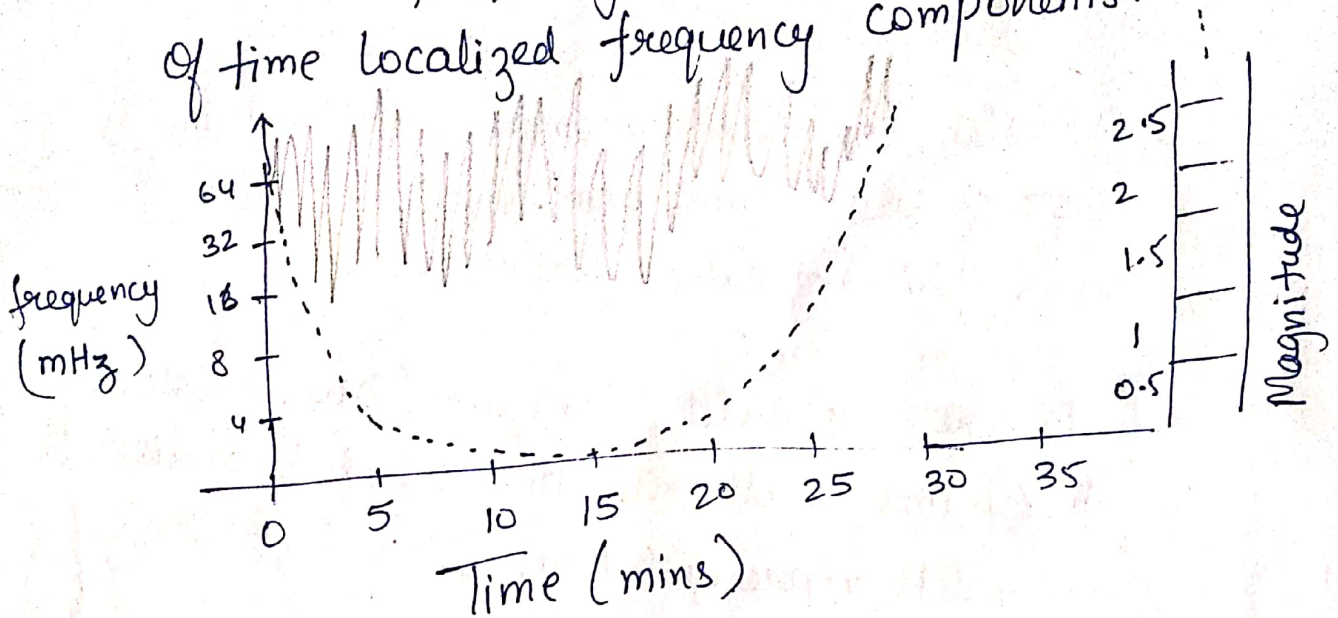 Of time localized frequency components.
64
32
16
8
4
frequency
(mHz)
0 5 10 15 20 25 30 35
Time (mins)
2.5
2
1.5
1
0.5
Magnitude